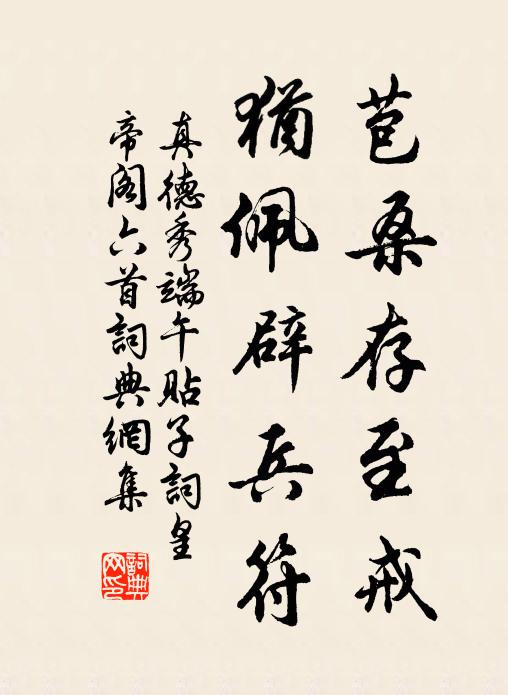 苞桑存至戒
猶佩辟兵符
真德秀端午貼子詞皇
帝閣六首詞典網集
詞典網印